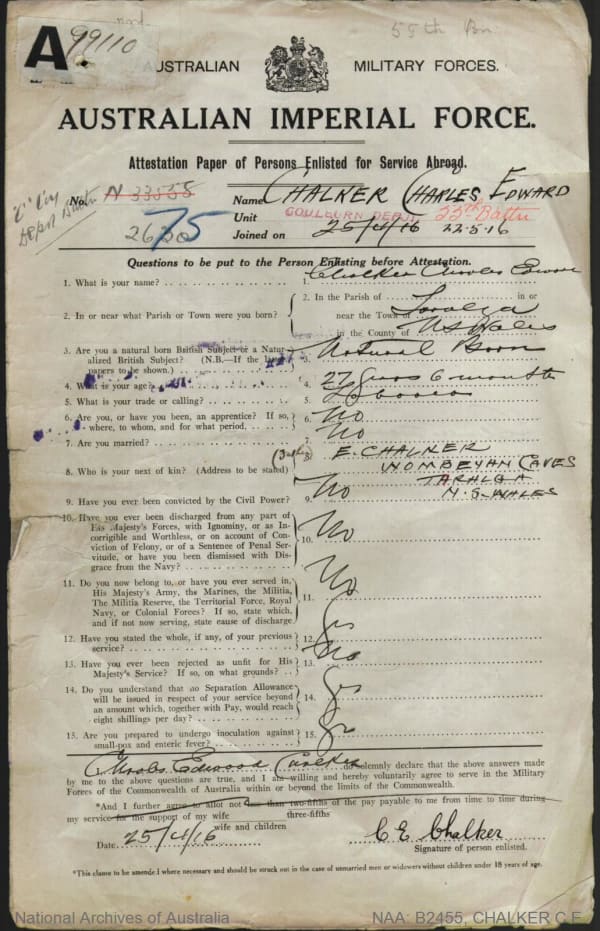 55th Bn
A 99110
AUSTRALIAN MILITARY FORCES.
AUSTRALIAN IMPERIAL FORCE.
Attestation Paper of Persons Enlisted for Service Abroad.
"C" Coy
Depot Battn
No. N 33558
2620
75
Name CHALKER CHARLES EDWARD
Unit GOULBURN DEPOT 55th Battn
Joined on 25/4/16 22-5-16
Questions to be put to the Person Enlisting before Attestation.
1. What is your name? 1. Chalker Charles Edward
2. In or near what Parish or Town were you born? 2. In the Parish of in or
near the Town of Taralga
in the County of NS Wales
3. Are you a natural born British Subject or a Natur-
alized British Subject? (N.B.—If the latter,
papers to be shown.) 3. Natural Born
4. What is your age? 4. 27 years 6 months
5. What is your trade or calling? 5. Laborer
6. Are you, or have you been, an apprentice? If so,
where, to whom, and for what period. 6. No
7. Are you married? 7. No
8. Who is your next of kin? (Address to be stated) (Father) 8. E. CHALKER
WOMBEYAN CAVES
TARALGA
N.S. WALES
9. Have you ever been convicted by the Civil Power? 9. No
10. Have you ever been discharged from any part of
His Majesty's Forces, with Ignominy, or as In-
corrigible and Worthless, or on account of Con-
viction of Felony, or of a Sentence of Penal Ser-
vitude, or have you been dismissed with Dis-
grace from the Navy? 10. No
11. Do you now belong to, or have you ever served in,
His Majesty's Army, the Marines, the Militia,
The Militia Reserve, the Territorial Force, Royal
Navy, or Colonial Forces? If so, state which,
and if not now serving, state cause of discharge 11. No
12. Have you stated the whole, if any, of your previous
service? 12. Yes
13. Have you ever been rejected as unfit for His
Majesty's Service? If so, on what grounds? 13. No
14. Do you understand that no Separation Allowance
will be issued in respect of your service beyond
an amount which, together with Pay, would reach
eight shillings per day? 14. Yes
15. Are you prepared to undergo inoculation against
small-pox and enteric fever? 15. Yes
Charles Edward Chalker do solemnly declare that the above answers made
by me to the above questions are true, and I am willing and hereby voluntarily agree to serve in the Military
Forces of the Commonwealth of Australia within or beyond the limits of the Commonwealth.
*And I further agree to allot not less than two-fifths of the pay payable to me from time to time during
three-fifths
my service for the support of my wife
wife and children
Date 25/4/16
C E Chalker
Signature of person enlisted.
*This clause to be amended where necessary and should be struck out in the case of unmarried men or widowers without children under 18 years of age.
National Archives of Australia NAA: B2455, CHALKER C E